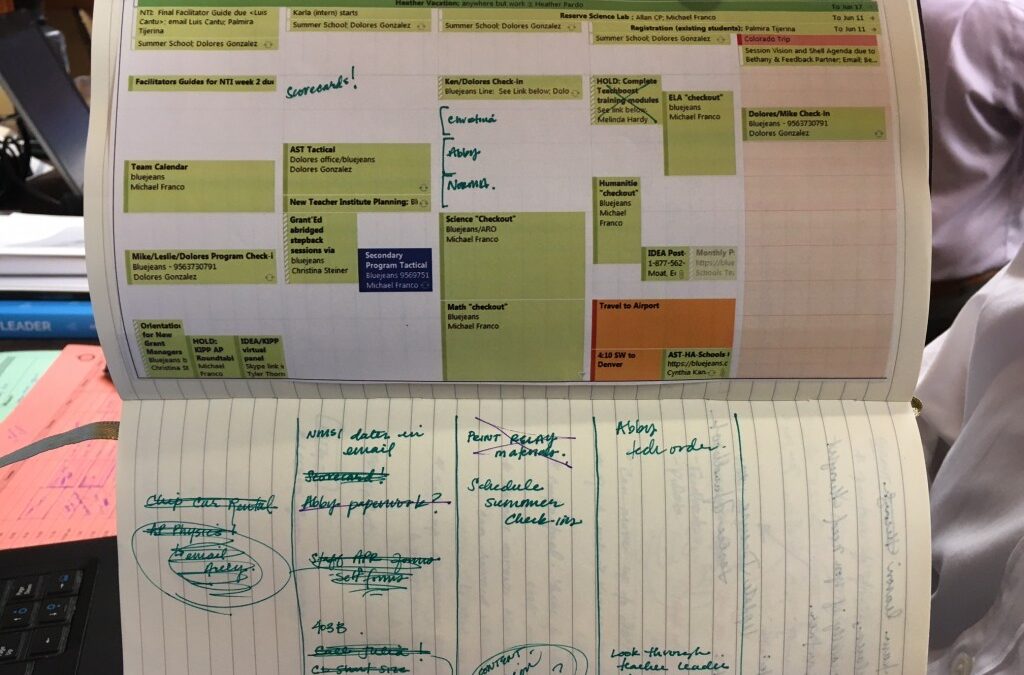 Heather Vacation; anywhere but work :: Heather Pardo
To Jun 17
Reserve Science Lab ; Allan CP; Michael Franco
To Jun 11
Registration (existing students); Palmira Tijerina
To Jun 11
NTI: Final Facilitator Guide due <Luis
Cantu>; email Luis Cantu; Palmira
Tijerina
Summer School; Dolores Gonzalez
Karla (intern) starts
Summer School; Dolores Gonzalez
Summer School; Dolores Gonzalez
Summer School; Dolores Gonzalez
Colorado Trip
Session Vision and Shell Agenda due to
Bethany & Feedback Partner; Email; Be...
Facilitators Guides for NTI week 2 due
Team Calendar
bluejeans
Michael Franco
Mike/Leslie/Dolores Program Check-i
Bluejeans - 9563730791
Dolores Gonzalez
Orientation
for New
Grant
Managers
Bluejeans b
Christina St
HOLD:
KIPP AP
Roundtabl
Michael
Franco
IDEA/KIPP
virtual
panel
Skype link i
Tyler Thorn
Scorecards!
AST Tactical
Dolores office/bluejeans
Dolores Gonzalez
New Teacher Institute Planning; Bl
Grant'Ed
abridged
stepback
sessions via
bluejeans
Christina Steiner
Secondary
Program Tactical
Bluejeans 9569751
Michael Franco
Ken/Dolores Check-in
Bluejeans Line: See Link below; Dolo
Abby
Norma.
Science "Checkout"
Bluejeans/ARO
Michael Franco
Math "checkout"
Bluejeans
Michael Franco
HOLD: Complete
Teachboost
training modules
See link below;
Melinda Hardy
ELA "checkout"
bluejeans
Michael Franco
Humanitie
"checkout"
Bluejeans
Michael
Franco
IDEA Post-
1-877-562-
Moat, E
Monthly P
https://blue
Schools Te
Travel to Airport
4:10 SW to
Denver
AST-HA-Schools
https://bluejeans.c
Cynthia Kan
Dolores/Mike Check-in
Bluejeans - 9563730791
Dolores Gonzalez
LEADER
Chip Car Rental
AP Physics!
email
Arely.
NMSI dates in
email
Scorecard!
Abby paperwork?
Staff APR forms
Self forms
403B
PRINT RELAY
materials.
Schedule
summer
check-ins
CONTENT
Abby
tech order.
Look through
teacher leader